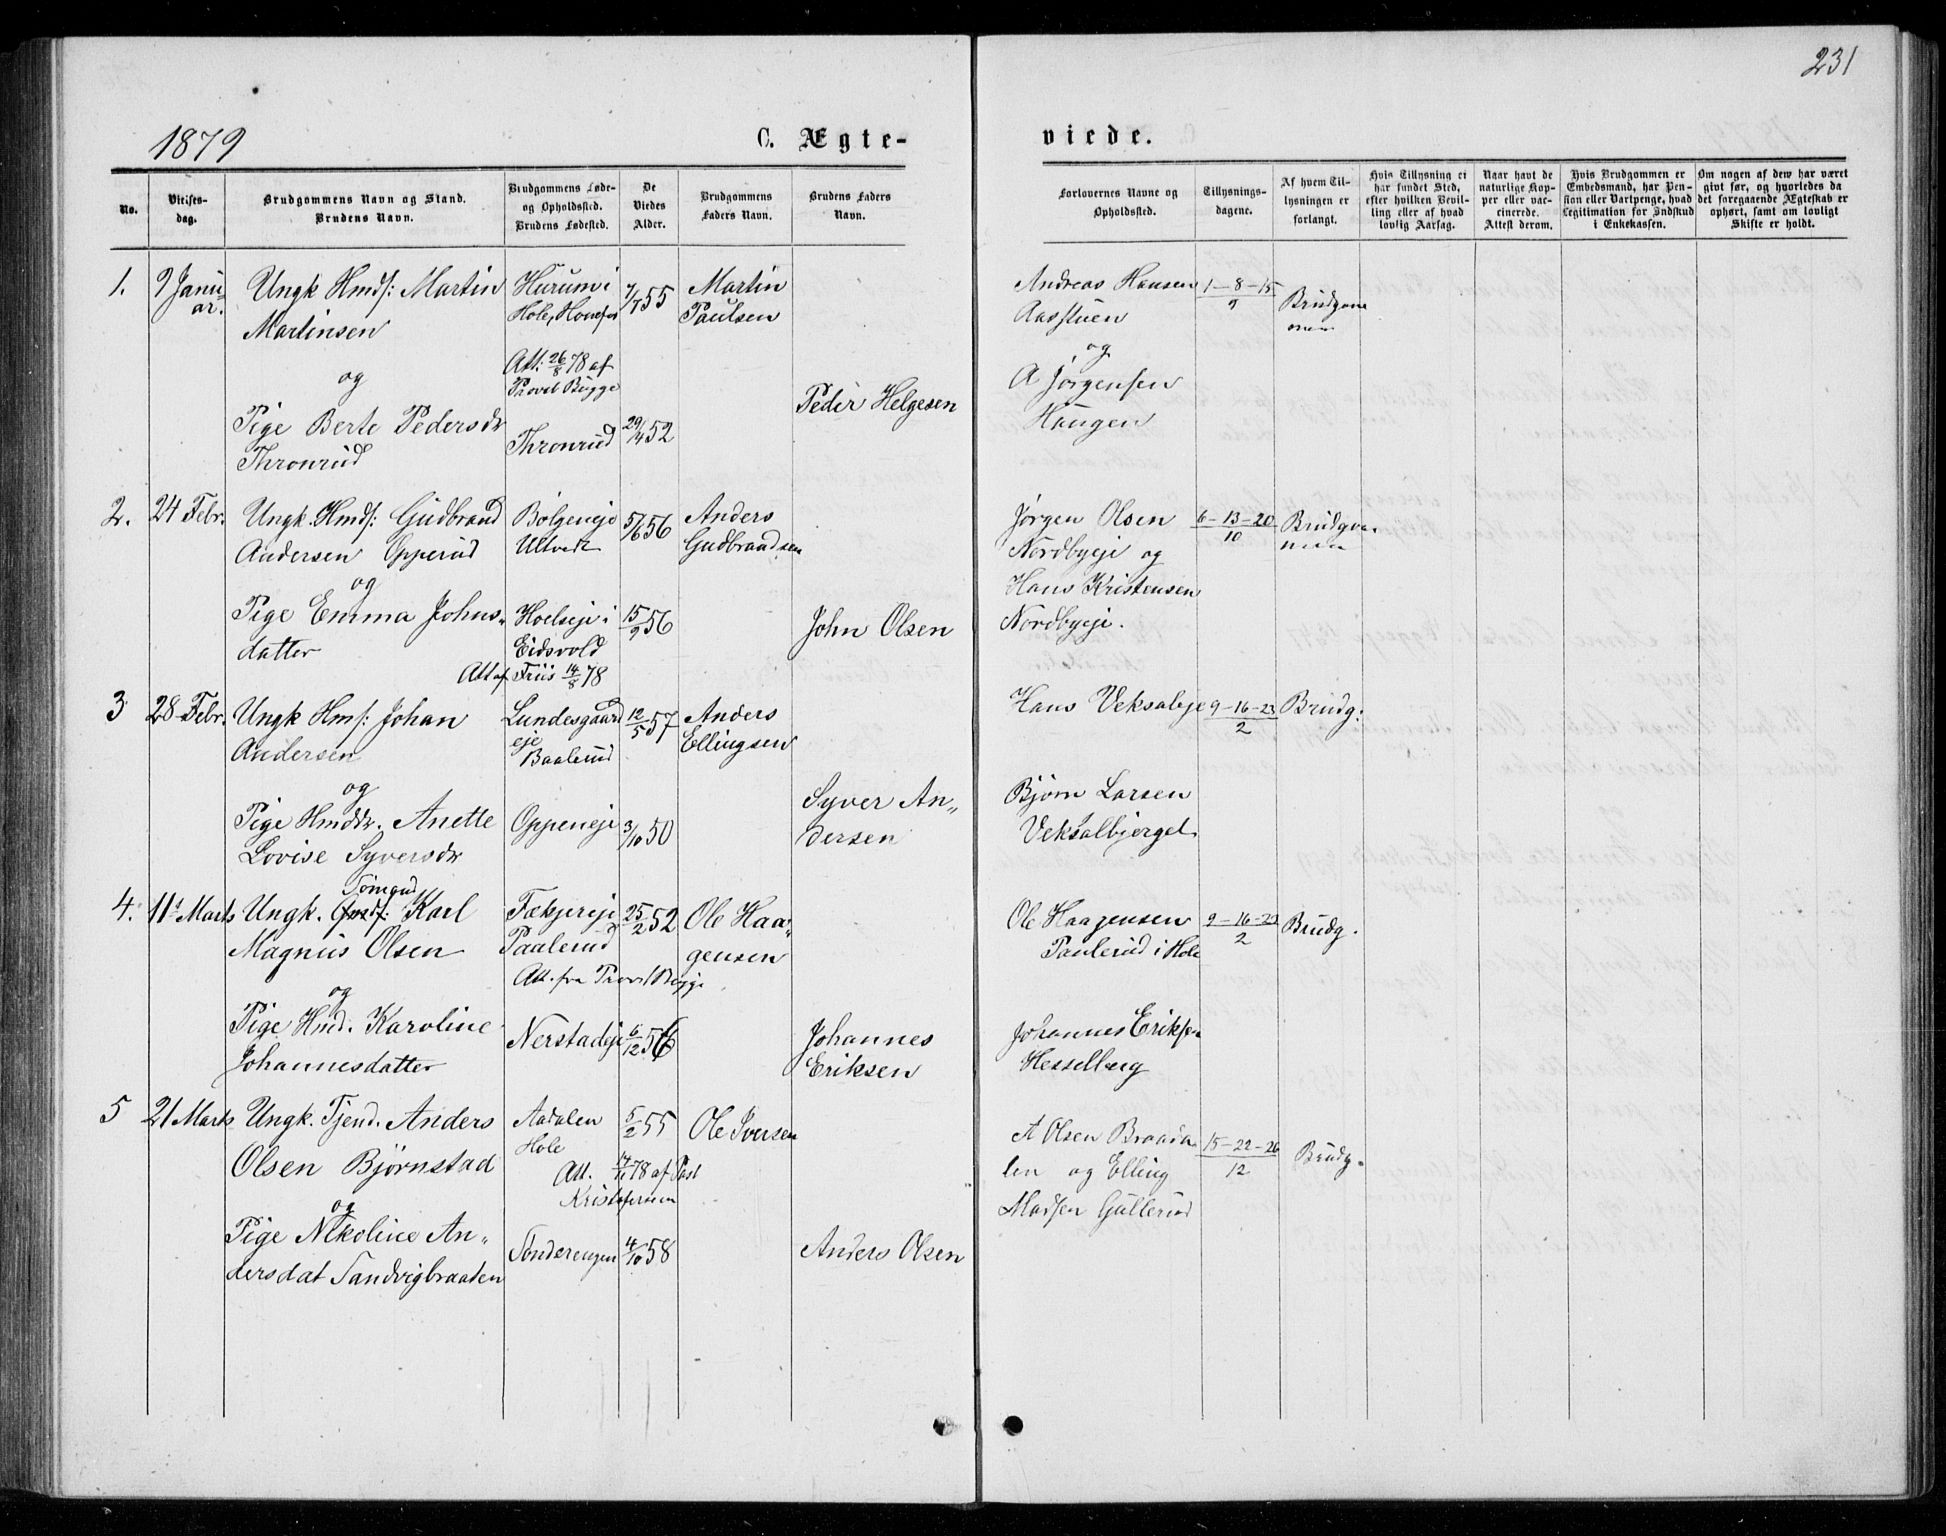 231
1879
C. Ægte-
viede.
No.
Vielses-
dag.
Brudgommens Navn og Stand.
Brudens Navn.
Brudgommens Føde-
og Opholdssted.
Brudens Fødested.
De
Viedes
Alder.
Brudgommens
Faders Navn.
Brudens Faders
Navn.
Forlovernes Navne og
Opholdssted.
Tillysnings-
dagene.
Af hvem Til-
lysningen er
forlangt.
Hvis Tillysning ei
har fundet Sted,
efter hvilken Bevil-
ling eller af hvad
lovlig Aarsag.
Naar havt de
naturlige Kop-
per eller vac-
cinerede.
Attest derom.
Hvis Brudgommen er
Embedsmand, har Pen-
sion eller Vartpenge, hvad
Legitimation for Indskud
i Enkekassen.
Om nogen af dem har været
givt før, og hvorledes da
det foregaaende Ægteskab er
ophørt, samt om lovligt
Skifte er holdt.
1.
9 Janu
ar.
Ungk Hmds: Martin
Martinsen
og
Pige Berte Pedersdr
Thronrud
Hurum i
Hole,
Att: 26/8 78 af
Provst Bugge
Thronrud
7/7 55
29/4 52
Martin
Paulsen
Peder Helgesen
Andreas Hansen
Aasstuen
og
A Jørgensen
Haugen
1–8–15
9
Brudgom
men
2.
24 Febr.
Ungk. Hmds: Gudbrand
Andersen Opperud
og
Pige Emma Johns„
datter
Bølgeneje
Ultvedt
Hoelseje i
Eidsvold
Att af Friis 14/8 78
5/6 56
15/9 56
Anders
Gudbrandsen
John Olsen
Jørgen Olsen
Nordbyeje og
Hans Kristensen
Nordbyeje.
6–13–20
10
Brudgom
men
3
28 Febr.
Ungk Hms: Johan
Andersen
og
Pige Hmddr. Anette
Lovise Syversdr
Lundesgaard
eje
Baalerud
Oppeneje
12/5 57
3/10 50
Anders
Ellingsen
Syver An„
dersen
Hans Veksaleje
Bjørn Larsen
Veksalbjerget
9–16–23
2
Brudg:
4.
11te Marts
Ungk. Karl
Magnus Olsen
og
Pige Hmd. Karoline
Johannesdatter
Fækjereje
Paalerud
Att. fra Provst Bugge
Nerstadeje
25/2 52
6/12 56
Ole Haa„
gensen
Johannes
Eriksen
Ole Haagensen
Paulerud i Hole
Johannes Eriksen
Hesselberg
9–16–23
2
Brudg.
5
21 Marts
Ungk. Tjend. Anders
Olsen Bjørnstad
og
Pige Nikoline An„
dersdat Sandvigbraaten
Aadalen
Hole
Att. 14/11 78 af Past
Kristofersen
Sonderengen
5/2 55
4/10 58
Ole Iversen
Anders Olsen
A Olsen Braada
len og Elling
Madsen Gullerud
15–22–26
12
Brudg.